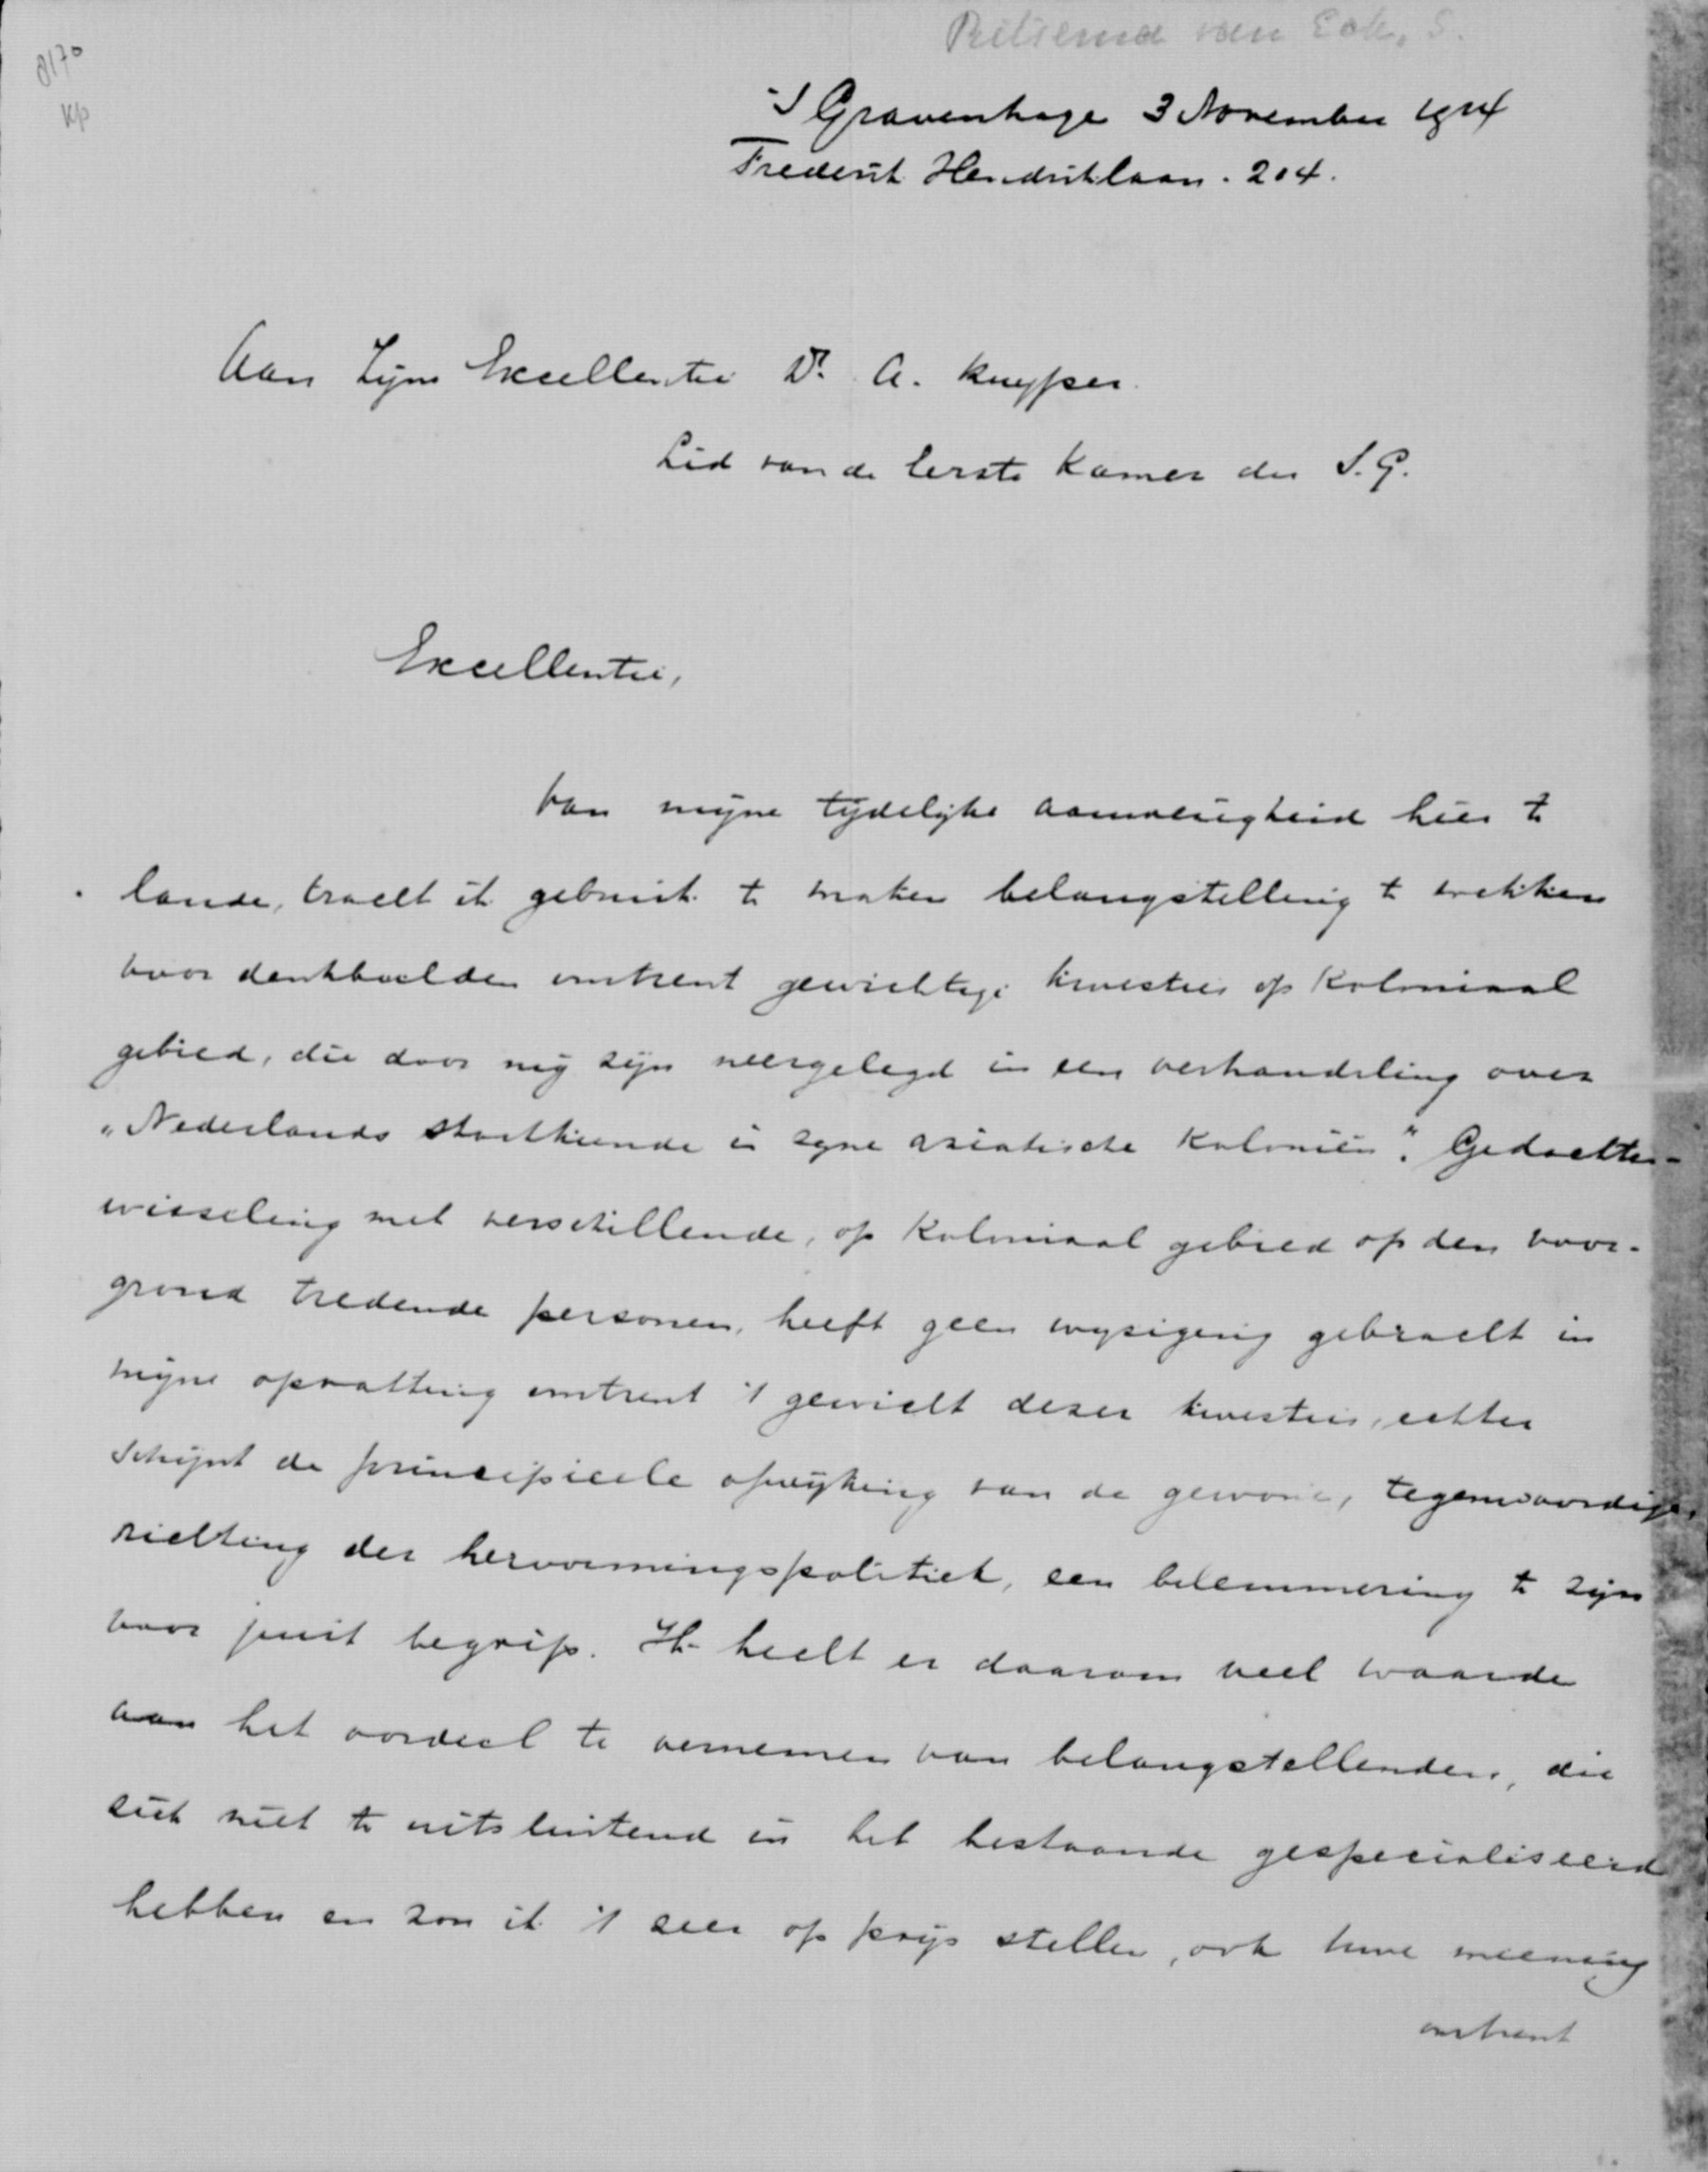 8170
Kp
Ritsema van Eck, S.
'S Gravenhage 3 November 1914
Frederik Hendriklaan. 204.
Aan Zijne Excellentie Dr. A. Kuyper.
Lid van de Eerste Kamer der S.G.
Excellentie,
Van mijne tijdelijke aanwezigheid hier te
lande, tracht ik gebruik te maken belangstelling te wekken
voor denkbeelden omtrent gewichtige kwesties op koloniaal
gebied, die door mij zijn neergelegd in een verhandeling over
"Nederlands staatkunde in zyne asiatische koloniën". Gedachten-
wisseling met verschillende, op koloniaal gebied op den voor-
grond tredende personen, heeft geen wysiging gebracht in
mijne opvatting omtrent 't gewicht dezer kwesties, echter
schijnt de principieele afwijking van de gewone, tegenwoordige,
richting der hervormingspolitiek, een belemmering te zijn
voor juist begrip. Ik hecht er daarom veel waarde
aan het oordeel te vernemen van belangstellenden, die
zich niet te uitsluitend in het bestaande gespecialiseerd
hebben en zou ik 't zeer op prijs stellen, ook Uwe meening
omtrent